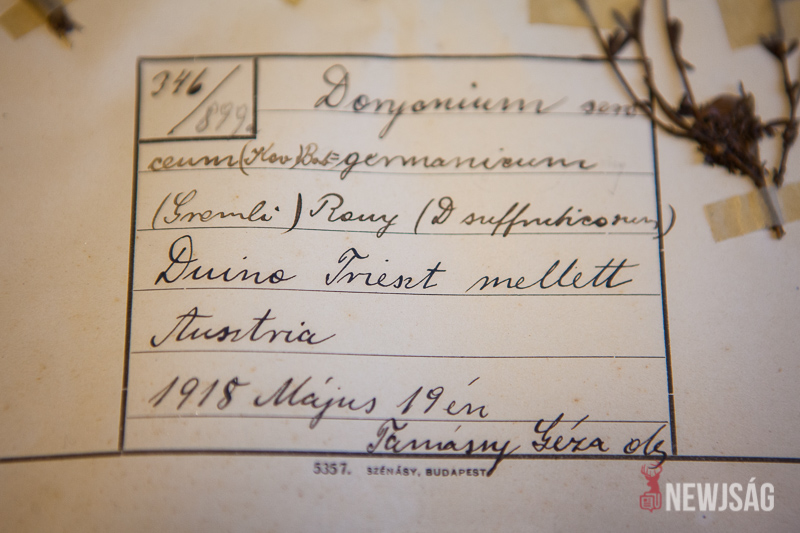 346/899.
Doryonium seri
ceum (Kov) Bas= germanicum
(Gremli) Rouy (D suffruticosum)
Duino Trieszt mellett
Ausztria
1918 Május 19 én
Tamássy Géza
5357. SZÉNÁSY, BUDAPEST
NEWJSÁG